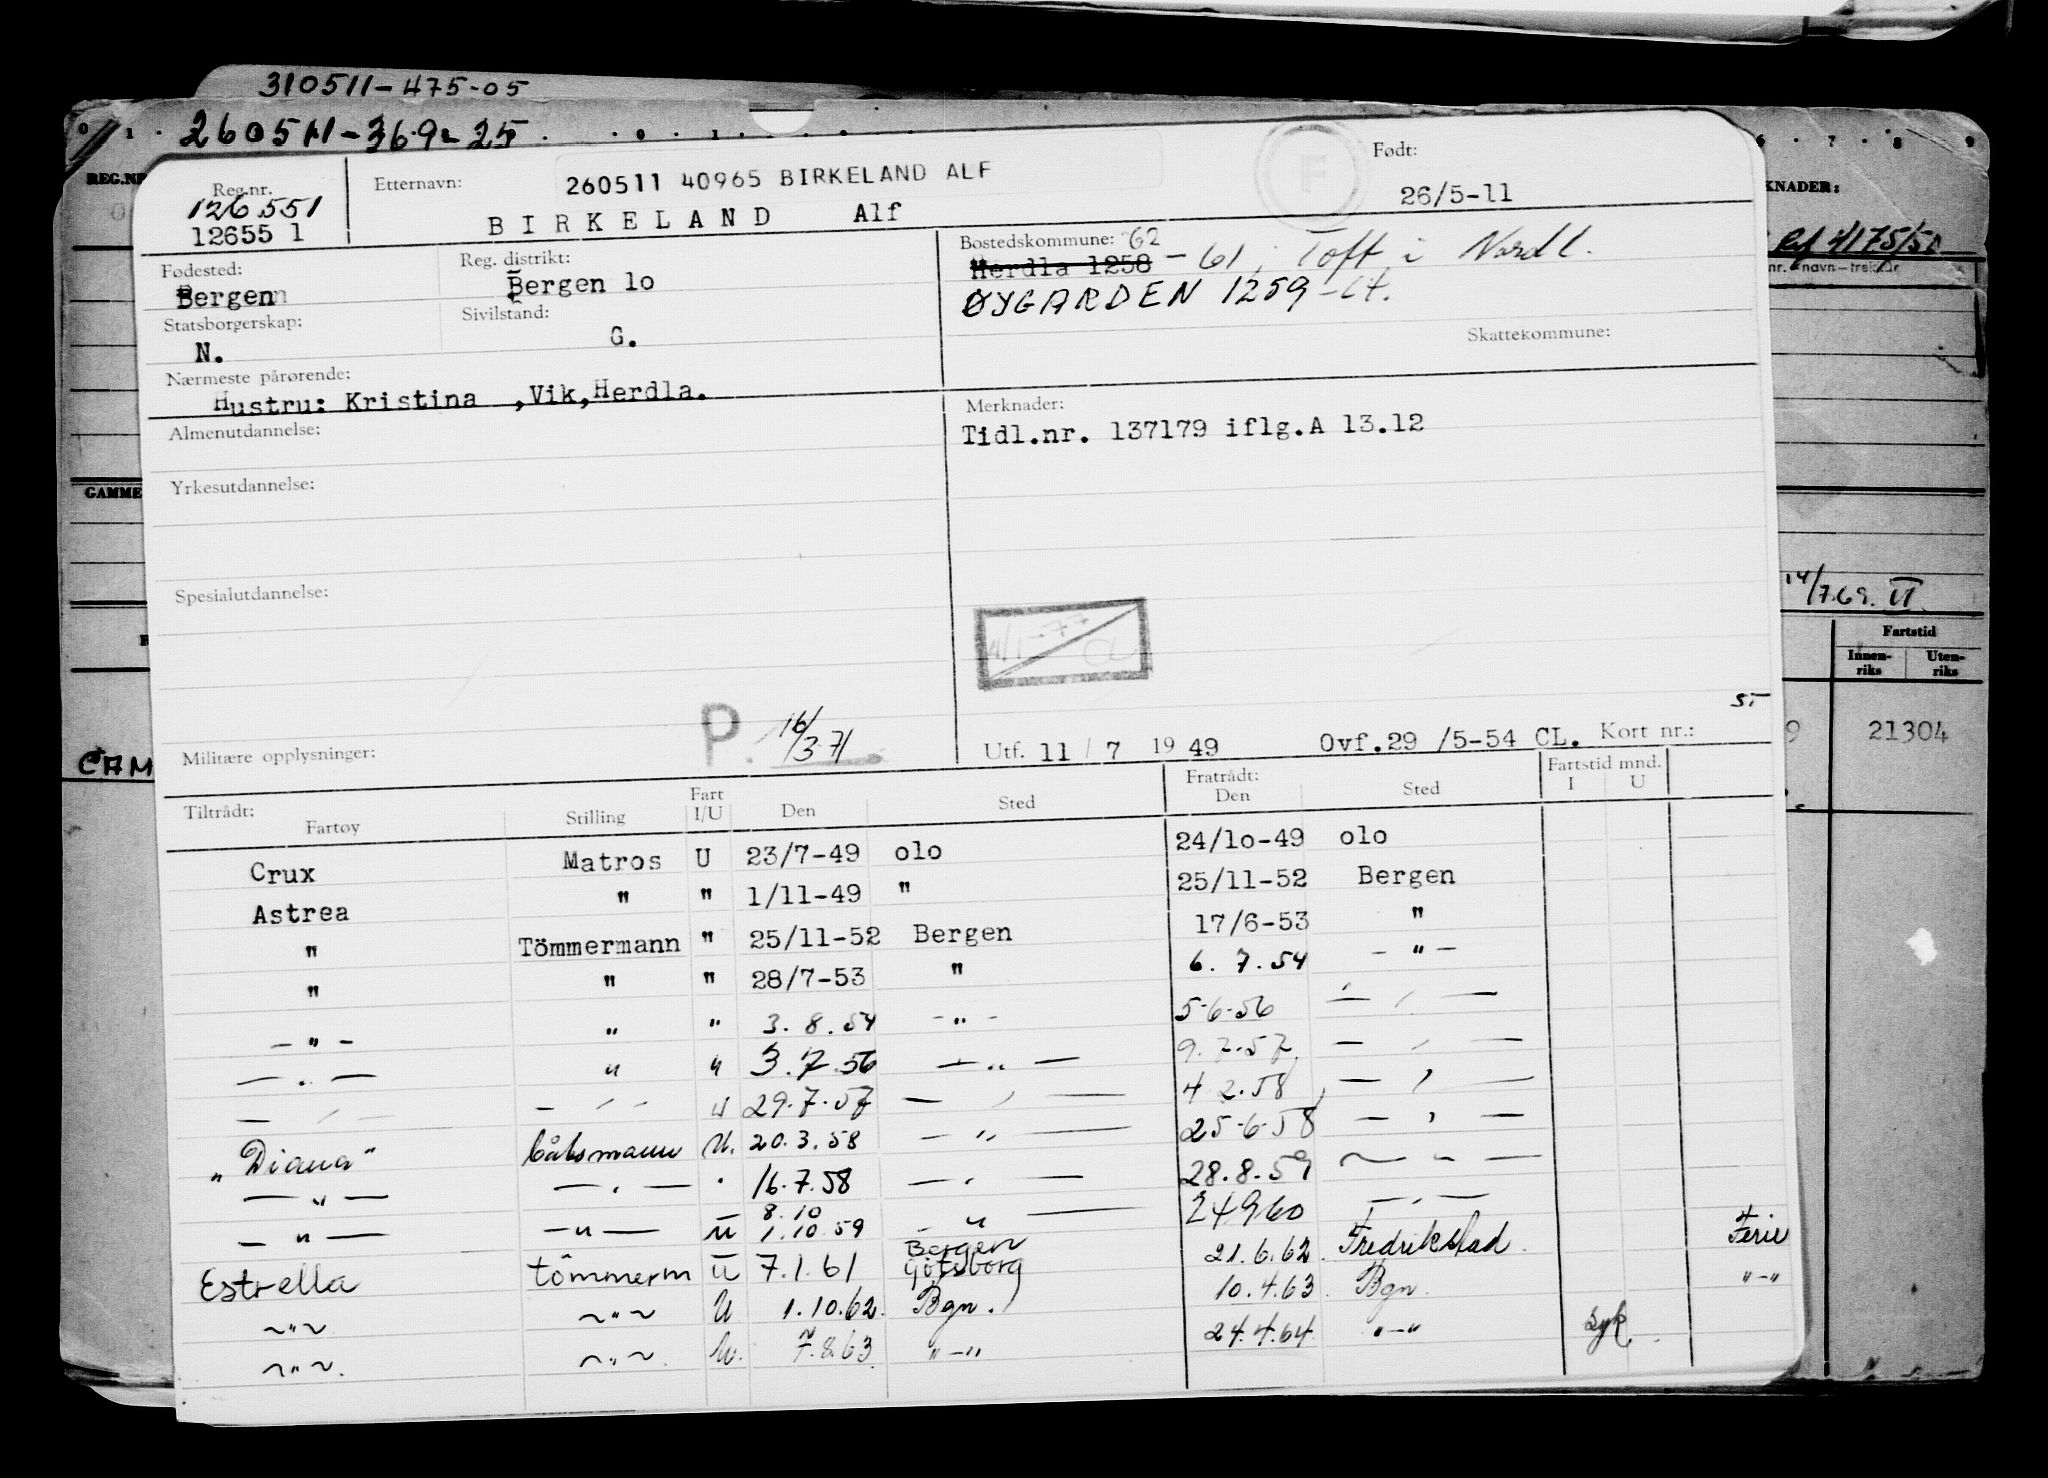 310511-475-05
260511-369-25
REG.NR
KNADER:
Reg.nr.
126551
12655 1
Etternavn:
260511 40965 BIRKELAND ALF
BIRKELAND Alf
F
Født:
26/5-11
Fødested:
Bergen
Reg. distrikt:
Bergen lo
Bostedskommune: 62
Herdla 1258 - 61, Toft i Nordl.
ØYGARDEN 1259
Statsborgerskap:
N.
Sivilstand:
G.
Skattekommune:
Nærmeste pårørende:
Hustru: Kristina ,Vik,Herdla.
Merknader:
Tidl.nr. 137179 iflg.A 13.12
Almenutdannelse:
Yrkesutdannelse:
GAMME
Spesialutdannelse:
14/7.69. II
Fartstid
Innen-riks Uten-riks
21304
Militære opplysninger:
P. 16/3 71
Utf. 11 / 7 19 49 Ovf.29 /5-54 CL. Kort nr.:
CAM
Tiltrådt: Fartøy Stilling Fart I/U Den Sted Fratrådt: Den Sted Fartstid mnd. I U
Crux Matros U 23/7-49 olo 24/lo-49 olo
Astrea " " 1/11-49 " 25/11-52 Bergen
" Tömmermann " 25/11-52 Bergen 17/6-53 "
" " " 28/7-53 " 6. 7. 54 - " -
- " - " " 3. 8. 54 - " - 5-6-56 - " -
- " - " " 3. 7. 56 - " - 9. 7. 57 - " -
- " - - " - " 29.7.57 - " - 4 2.58 - " -
"Diana" båtsmann U. 20.3.58 - " - 25-6-58 - " -
- " - - " - " 16.7.58 - " - 28.8.59 - " -
- " - - " - U 8.10 1.10.59 - " - 24960 - " -
Estrella tömmerm U 7.1.61 Bergen Götsborg 21.6.62. Fredrikstad Ferie
- " - - " - U 1.10.62. Bgn. 10.4.63. Bgn. " - "
- " - - " - U. 7.8.63. " - " 24.4.64 " - " Syk